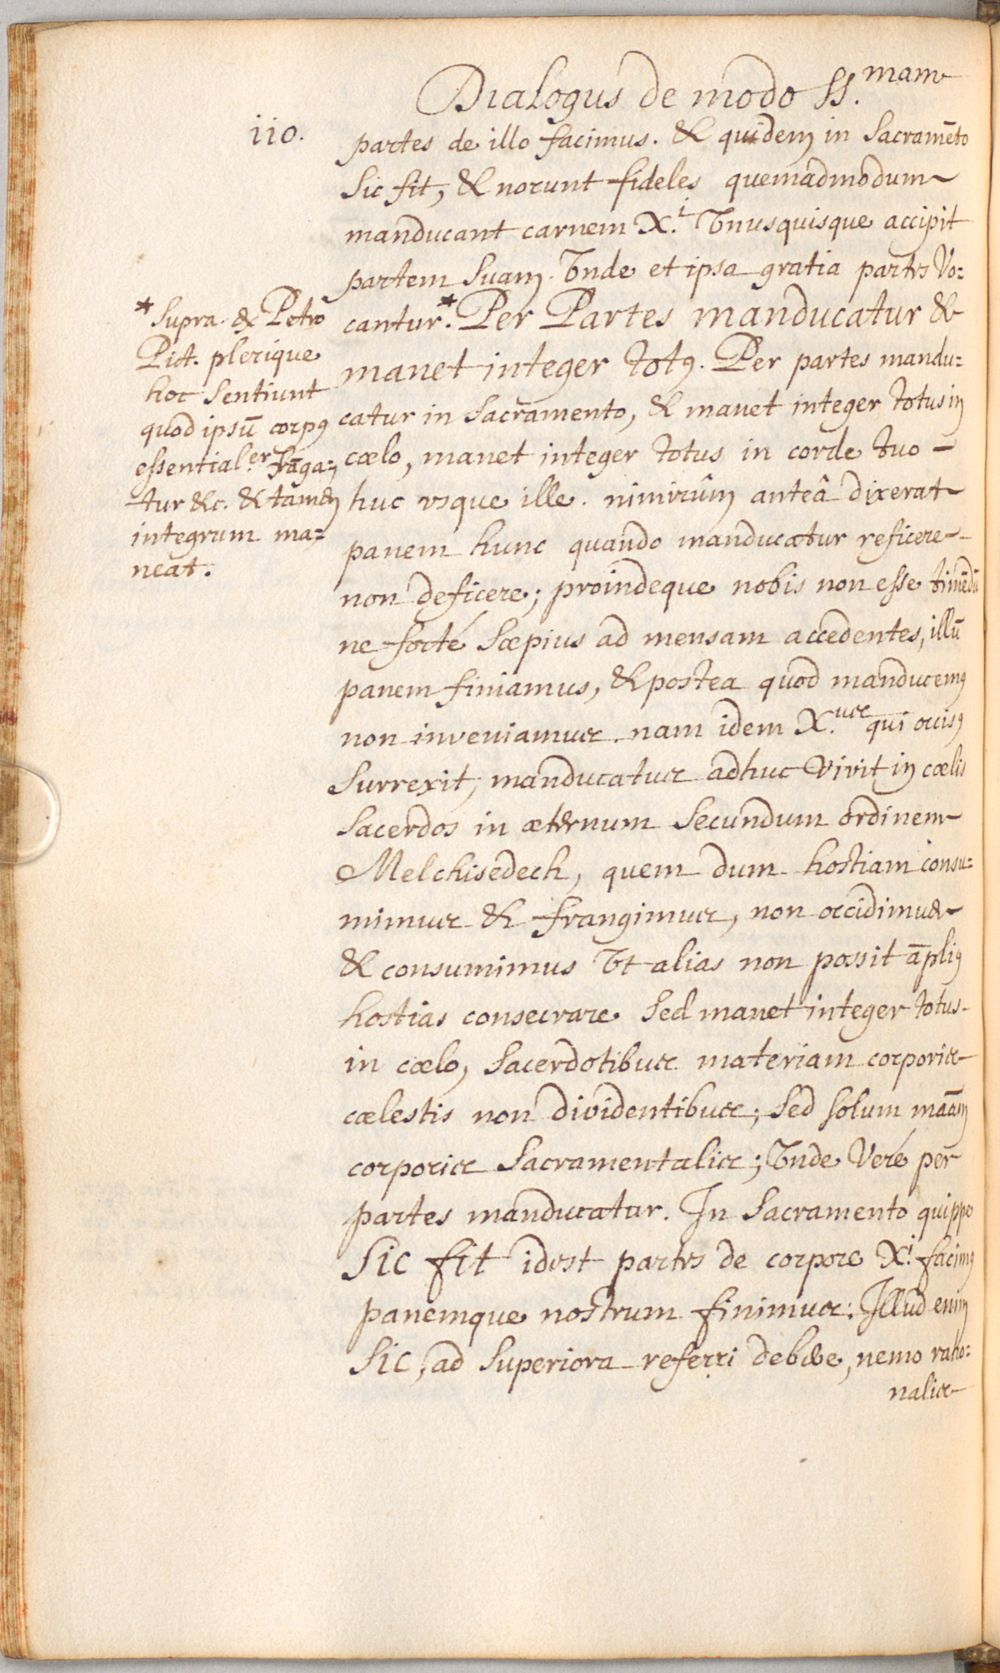 Dialogus de modo SS.mam
110.
partes de illo facimus. & quidem in Sacramēto
Sic fit, & norunt fideles quemadmodum
manducant carnem X.i Vnusquisque accipit
partem Suam. Vnde et ipsa gratia partes Vo:
cantur.* Per Partes manducatur &
manet integer totꝰ. Per partes mandu:
catur in Sacramento, & manet integer totus in
cœlo, manet integer totus in corde tuo
huc vsque ille. nimirûm anteâ dixerat
panem hunc quando manducatur reficere
non deficere; proindeque nobis non esse timēdū
ne forté Sœpius ad mensam accedentes, illū
panem finiamus, & postea quod manducemꝰ
non inveniamus. nam idem X.us qui occisꝰ
Surrexit, manducatus adhuc Vivit in cœlis
Sacerdos in æternum Secundum ordinem
Melchisedech, quem dum hostiam consu:
mimus & frangimus, non occidimus
& consumimus Vt alias non possit āpliꝰ
hostias consecrare Sed manet integer totus
in cœlo, Sacerdotibus materiam corporis
cælestis non dividentibus; Sed solum māam
corporis Sacramentalis; Vnde Veré per
partes manducatur. In Sacramento quippe
Sic fit idest partes de corpore X.i facimꝰ
panemque nostrum finimus: Illud enim
Sic, ad Superiora referri debere, nemo ratio:
nalis
*Supra & Petro
Pict. plerique
hoc Sentiunt
quod ipsū corpꝰ
essential.er frāga:
tur &c. & tamen
integrum ma:
neat.